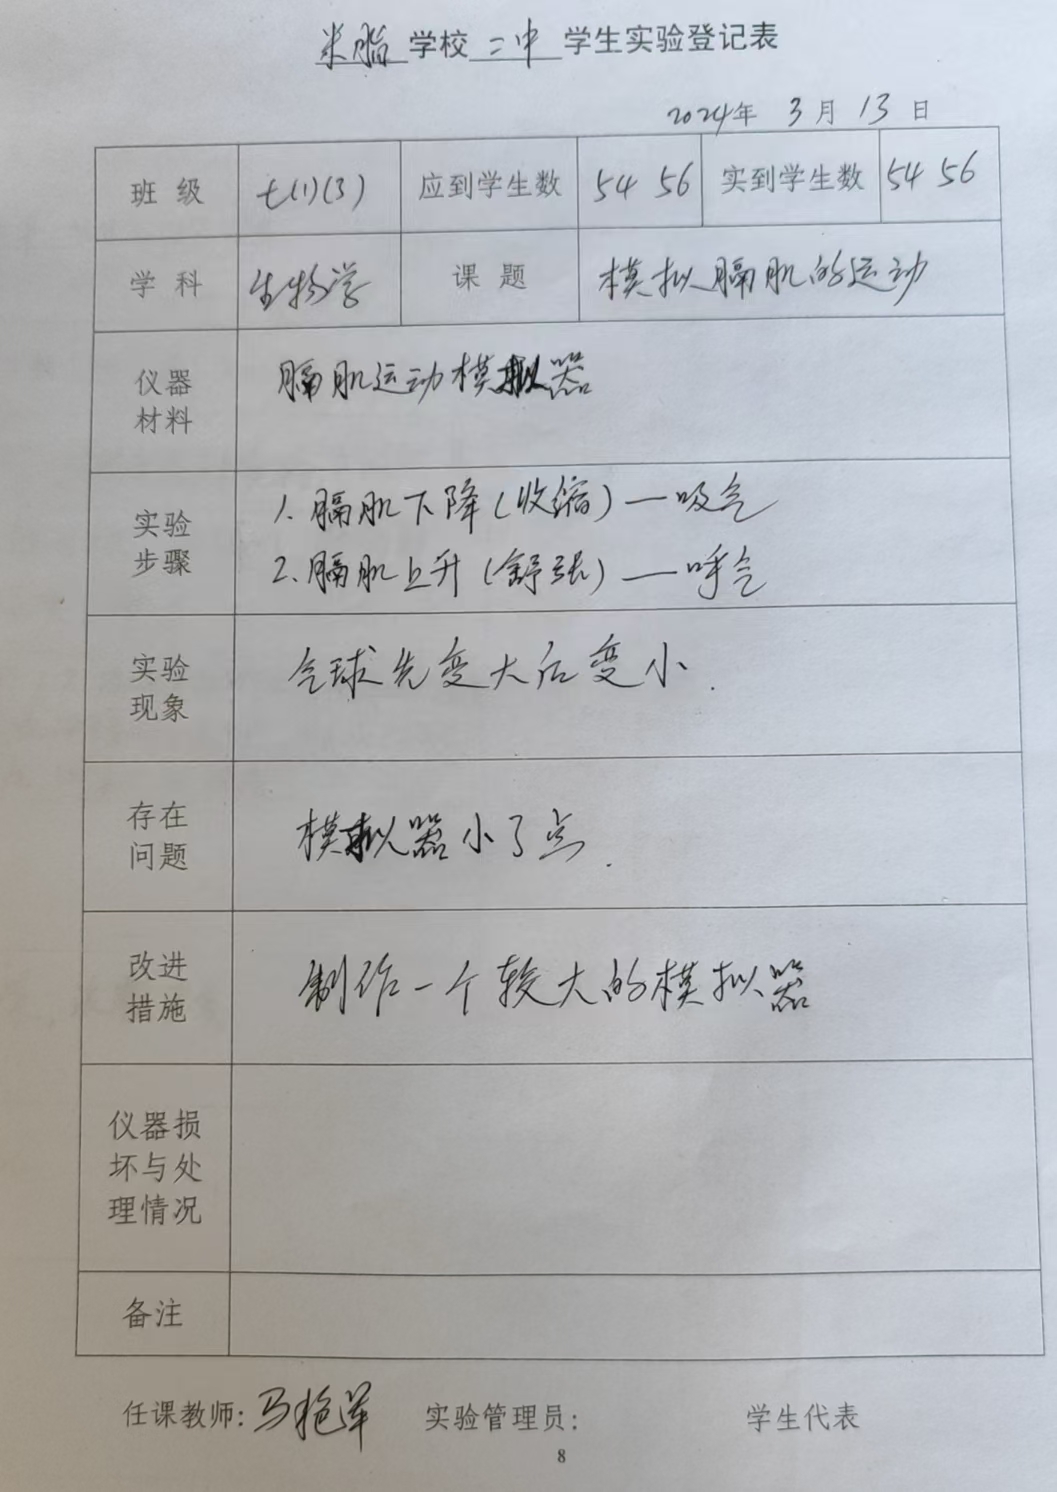 米脂 学校 二中 学生实验登记表
2024年 3月 13日
班 级 七(1)(3) 应到学生数 54 56 实到学生数 54 56
学 科 生物学 课 题 模拟膈肌的运动
仪器材料 膈肌运动模拟器
实验步骤 1. 膈肌下降(收缩)—吸气
2. 膈肌上升(舒张)—呼气
实验现象 气球先变大后变小.
存在问题 模拟器小了点.
改进措施 制作一个较大的模拟器
仪器损坏与处理情况
备注
任课教师: 马艳 实验管理员: 学生代表
8